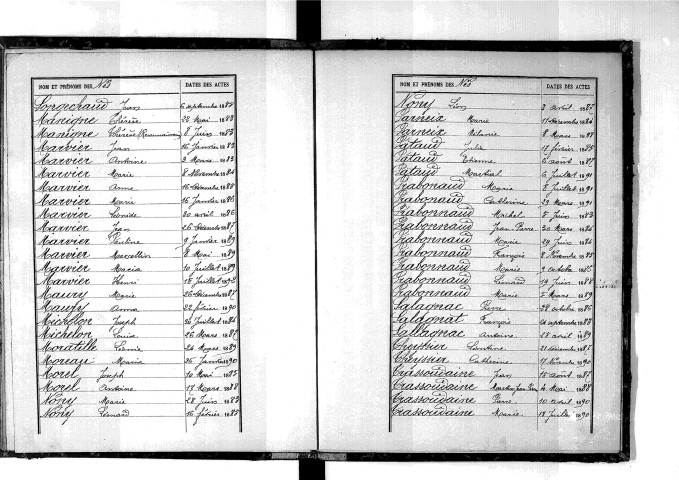 NOM ET PRÉNOMS DES Nés DATES DES ACTES
Longechaud Jean 6 septembre 1887
Manigne Thérèse 22 Mai 1888
Manigne Thérèse 8 Juin 1883
Marvier Jean 16 Janvier 1883
Marvier Antoine 3 Mars 1883
Marvier Marie 8 Novembre 1884
Marvier Anna 16 Décembre 1888
Marvier Marie 16 Janvier 1886
Marvier Léonide 30 avril 1886
Marvier Jean 26 Décembre 1887
Marvier Pauline 9 Janvier 1889
Marvier Marcellin 8 Mai 1889
Marvier Maria 10 Juillet 1889
Marvier Henri 18 Juillet 1892
Maury Marie 26 Décembre 1887
Maury Anna 22 février 1890
Michelon Joseph 30 Juillet 1886
Michelon Louis 26 Mars 1887
Moratille 24 Mars 1889
Moreau Maria 26 Janvier 1890
Morel Joseph 10 Mai 1885
Morel Antoine 17 Mars 1888
Nony Marie 28 Juin 1883
Nony Léonard 16 février 1885
NOM ET PRÉNOMS DES Nés DATES DES ACTES
Nony Léon 3 avril 1887
Parneix Marie 11 Décembre 1884
Parneix Mélanie 8 Mars 1888
Pataud Julie 17 février 1885
Pataud Etienne 6 août 1887
Pataud Martial 6 Juillet 1891
Rabonaud Maria 8 Juillet 1891
Rabonaud Catherine 29 Mars 1891
Rabonnaud Michel 5 Juin 1883
Rabonnaud Jean Pierre 20 Mars 1884
Rabonnaud Marie 29 Juin 1884
Rabonnaud François 8 Novembre 1885
Rabonnaud Marie 9 octobre 1886
Rabonnaud Léonard 19 Juin 1888
Rabonnaud Marie 5 Mars 1889
Salagnac Pierre 28 octobre 1886
Salagnat François 20 septembre 1888
Sallagnac Antoine 28 avril 1889
Léontine 21 Décembre 1887
Catherine 17 Novembre 1890
Trassoudaine Jean 15 août 1887
Trassoudaine 4 Mai 1888
Trassoudaine Pierre 10 avril 1890
Trassoudaine Marie 18 Juillet 1890